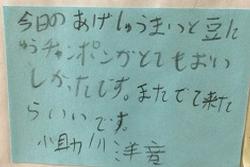 今日のあげしゅうまいと豆にゅ
うチャンポンがとてもおい
しかったです。またでて来た
らいいです。
小助川洋章